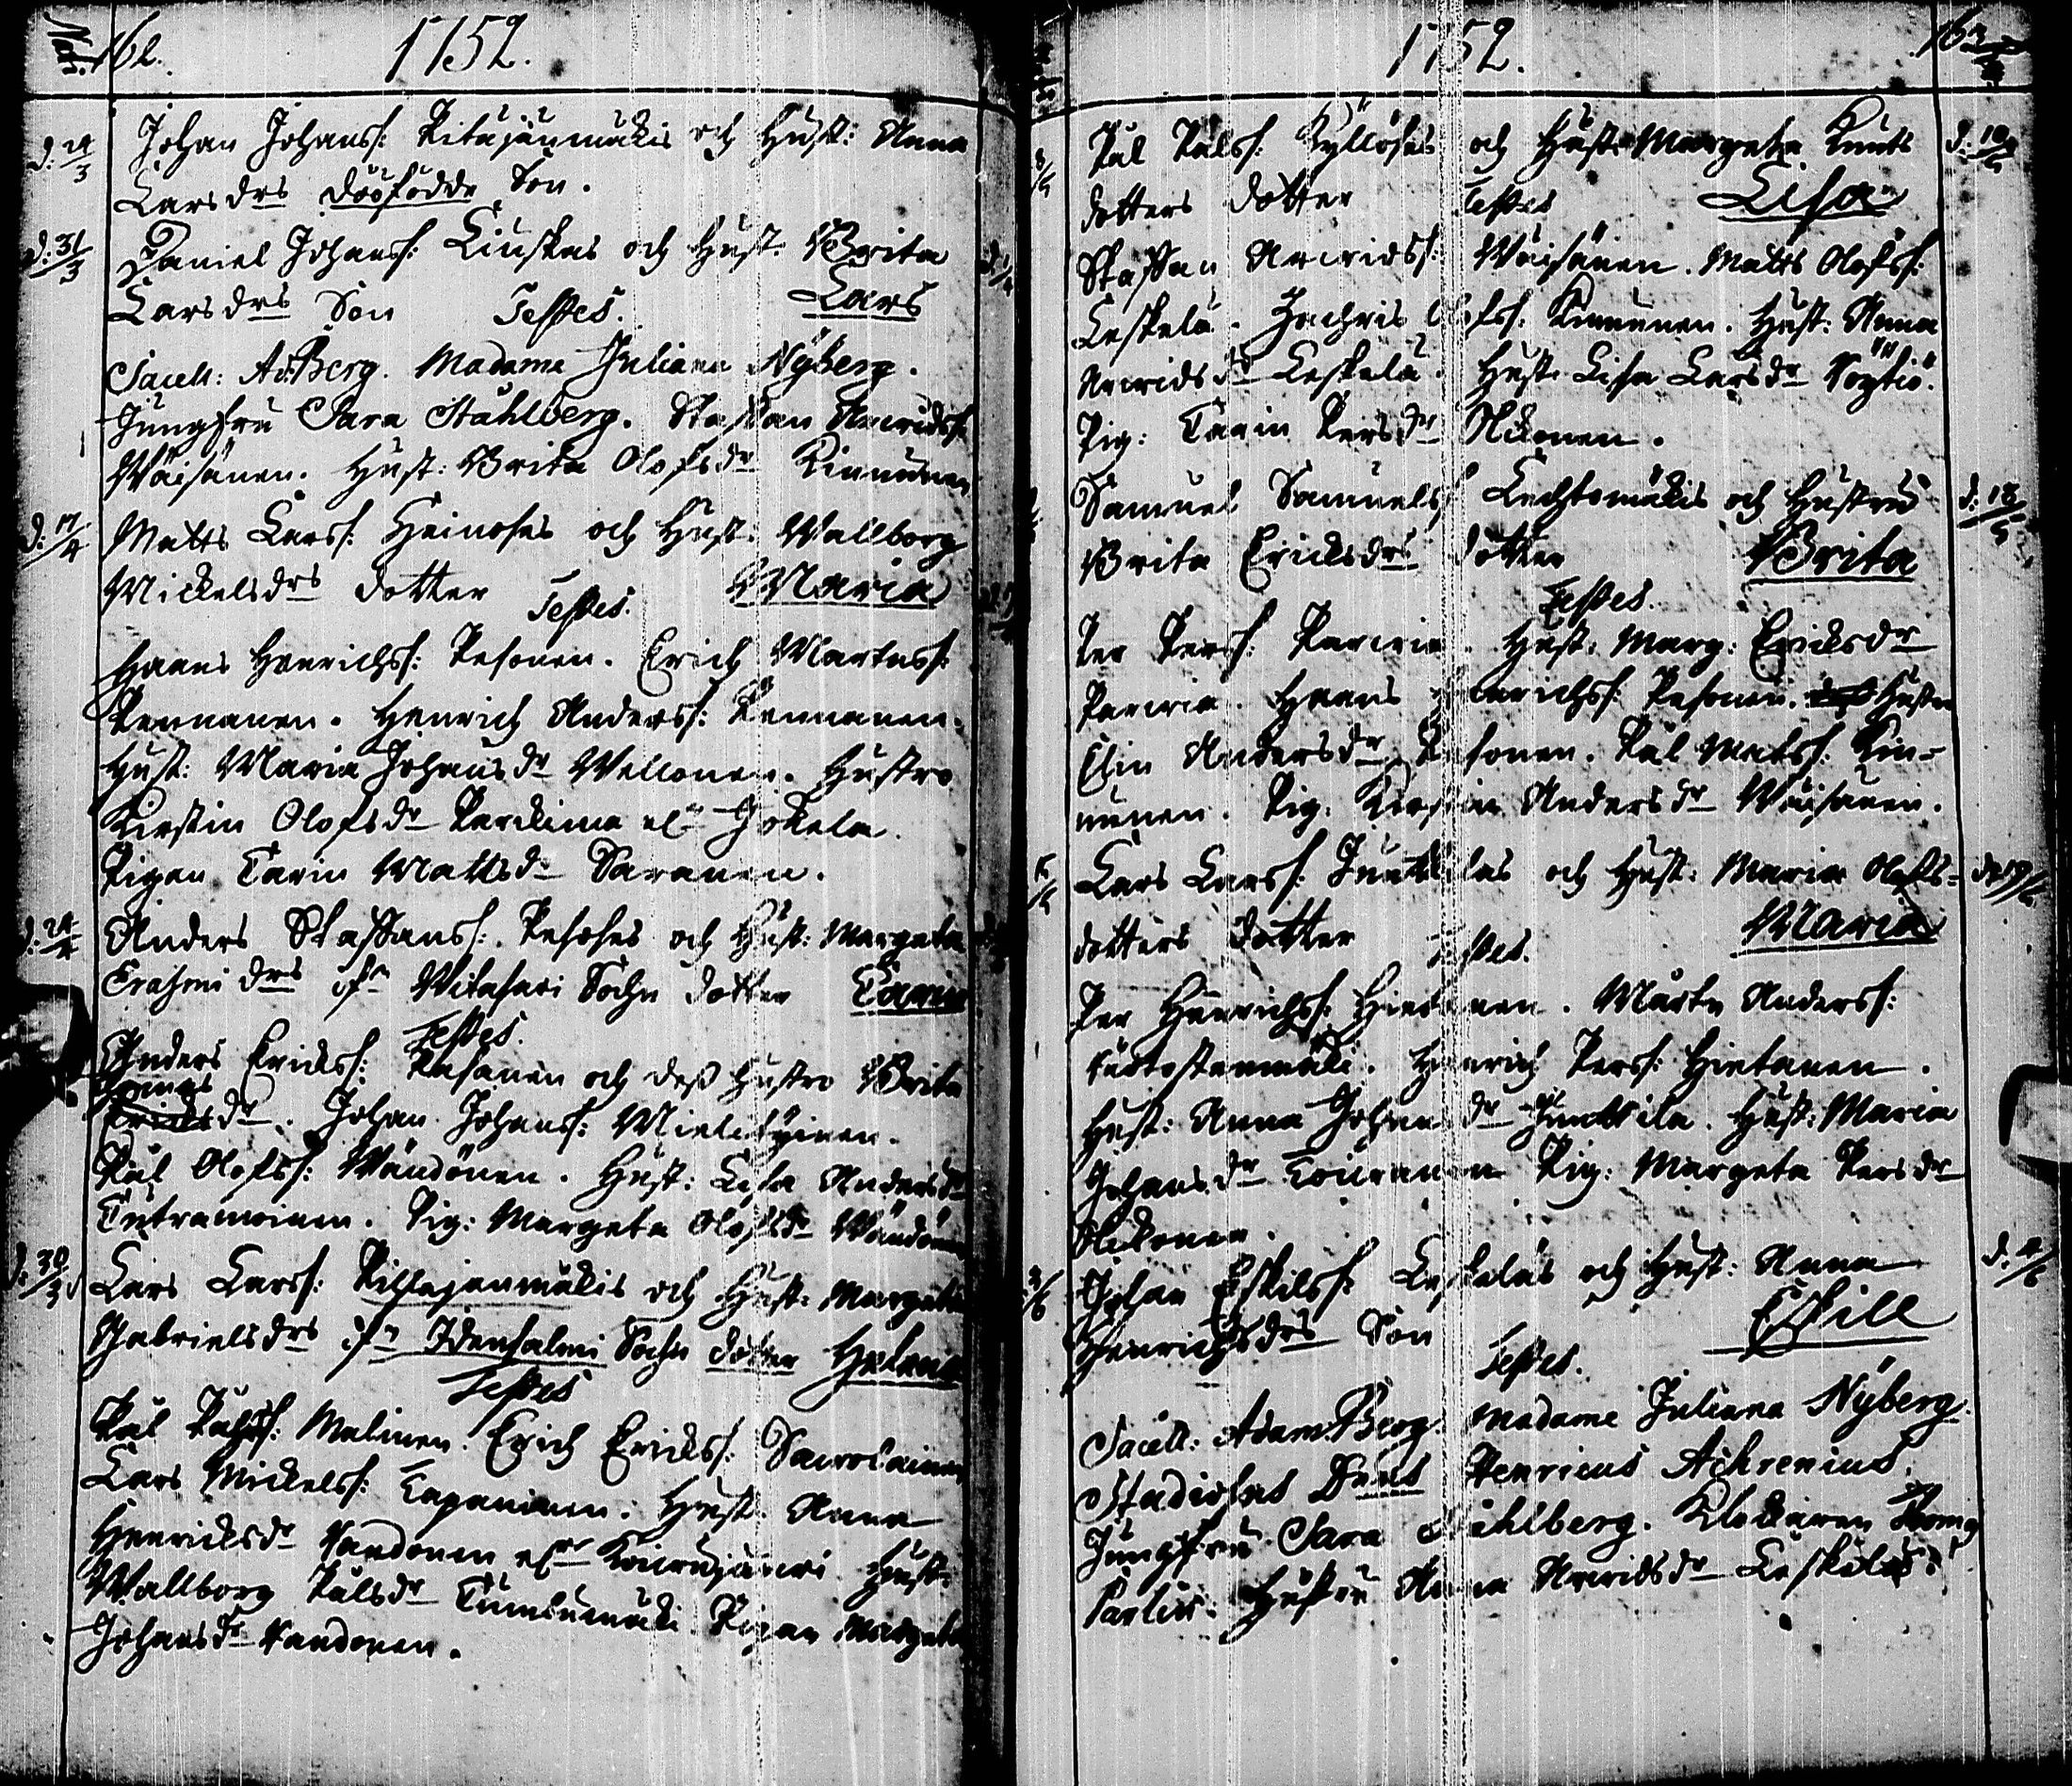 Nat: 162.
1752.
d. 24/3 Johan Johanss: Pitäjänmäkis och Hust: Anna
Larsdrs dödfödde Son.
d. 31/3 Daniel Johanss: Liuskas och Hust. Brita
Larsdrs Son Testes. Lars
Sacell: Ad: Berg. Madame Juliana Nyberg.
Jungfru Sara Ståhlberg. Staffan Arvidss:
Wäisänen. Hust: Brita Olofsdr Kinnunen
d. 17/4 Matts Larss: Heinosas och Hust: Wallborg
Mickelsdrs dotter Testes. Maria
Hans Henrichss: Pesonen. Erich Martenss:
Pennanen. Henrich Anderss: Pennanen.
Hust: Maria Johansdr Wellonen. Hustro
Kirstin Olofsdr Parckima elr Jokela.
Pigan Carin Mattsdr Saranen.
d. 24/4 Anders Staffanss: Pesosas och Hust: Margeta
Erasmi drs ifrn Witasari Sochn dotter Carin
Testes.
Anders Erickss: Räsänen och dess hustro Brita
Thomas
dr. Johan Johanss: Mielikäinen.
Pål Olofss: Wändönen. Hust: Lisa Andersdr
Tutramoinen. Pig: Margeta Olofsdr Wändönen
d. 30/3 Lars Larss: Pillajanmäkis och Hust: Margeta
Gabrielsdrs ifrn Idensalmi Sochn dotter Helena
Testes
Pål Pålss: Malinen. Erich Erickss: Savolainen
Lars Mickelss: Tapaninen. Hust. Anna
Henricksdr Vandonen elr Koirajärvi. Hust:
Wallborg Pålsdr Tuncumäki. Pigan Margeta
Johansdr Vandonen.
1752.
163
Pål Pålss: Kyllösas och Hust: Margeta Knuts d. 10/5
dotters dotter Testes Lisa
Staffan Arvidss: Wäisänen. Matts Olofss:
Leskelä. Zachris Olofss: Kinnunen. Hust: Anna
Arvidsdr Leskelä. Hust: Lisa Larsdr
Pig: Carin Persdr Ikonen.
Samuel Samuelss Lechtomäkis och Hustru d. 18/5
Brita Ericksdrs dotter Brita
Testes.
Per Perss: Parviai. Hust: Marg: Ericksdr
Parviai. Hans Henrichss: Pesonen. Hustru
Elin Andersdr Pesonen. Pål Matss: Kin-
nunen. Pig: Kirstin Andersdr Wäisänen.
Lars Larss: Junttilas och Hust: Maria Olofs-
dotters dotter Testes. Maria
Per Henrichss: Hietanen. Mårten Anderss:
Henrich Perss: Hietanen.
Hust: Anna Johansdr Junttila. Hust: Maria
Johansdr Pig: Margeta Persdr
Ikonen.
Johan Eskilss: Leskeläs och Hust: Anna
Henrichsdrs Son Eskill
Testes.
Sacell: Adam Berg. Madame Juliana Nyberg.
Studiosus Dnus Henricus Achrenius.
Jungfru Sara Ståhlberg. Klockaren Thomas
Hustru Anna Arvidsdr Leskeläs